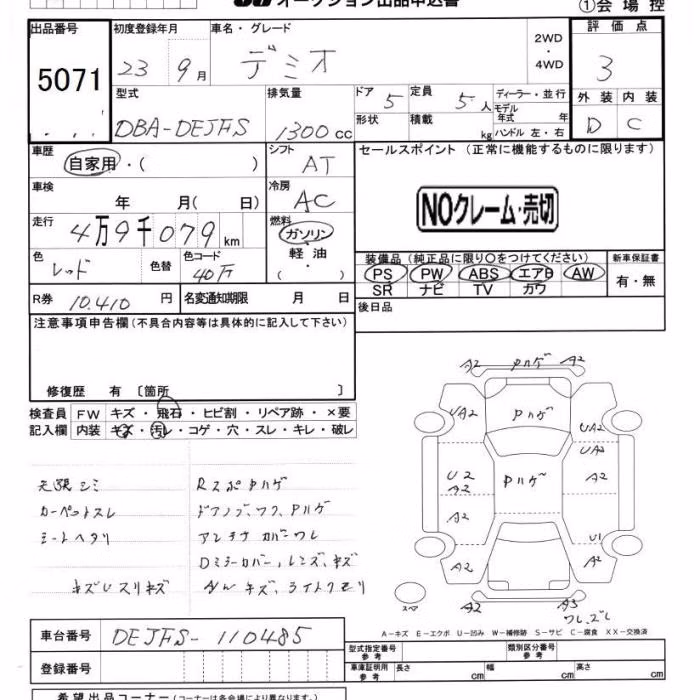 オークション出品申込書
①会場控
出品番号
5071
初度登録年月
23 9月
車名・グレード
デミオ
2WD
・
4WD
評価点
3
型式
DBA-DEJFS
排気量
1300cc
ドア
5
定員
5人
ディーラー・並行
モデル
年式 年
形状
積載
kg
ハンドル 左・右
外装
内装
D
C
車歴
自家用・( )
シフト
AT
セールスポイント (正常に機能するものに限ります)
車検
年 月( 日)
冷房
AC
NOクレーム・売切
走行
4万9千079km
燃料
ガソリン
・
軽油
・
( )
色
レッド
色替
色コード
40万
装備品 (純正品に限り○をつけてください)
新車保証書
PS PW ABS エアB AW
SR ナビ TV カワ
有・無
R券
10.410 円
名変通知期限 月 日
後日品
注意事項申告欄(不具合内容等は具体的に記入して下さい)
修復歴 有〔箇所 〕
検査員
記入欄
FW キズ・飛石・ヒビ割・リペア跡・×要
内装 キズ・汚レ・コゲ・穴・スレ・キレ・破レ
天張シミ
カーペットスレ
シートヘタリ
キズUスリキズ
RスポPハゲ
ドアノブ、ワク、Pハゲ
アンテナカバーワレ
Dミラーカバー、レンズ、キズ
AWキズ、ライトクモリ
A2 Pハゲ A2
UA2 Pハゲ UA2
UA2
U2
A2
Pハゲ
A2
A2
U1
A2
A2
A2
A3
ワレ、ズレ
スペア
A-キズ E-エクボ U-凹み W-補修跡 S-サビ C-腐食 XX-交換済
車台番号
DEJFS-110485
登録番号
型式指定番号
参考
類別区分番号
参考
車庫証明用
参考
長さ cm
幅 cm
高さ cm
希望出品コーナー(コーナーは各会場により異なります。)